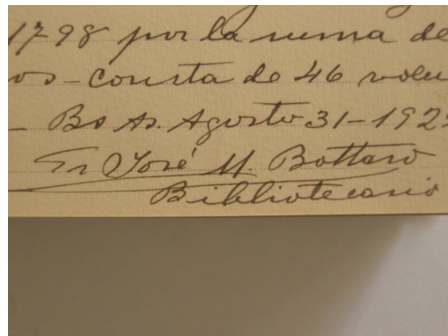 1798 por la suma de
os - consta de 46 volu
- Bs As. Agosto 31 - 192
Fr José M. Bottaro
Bibliotecario